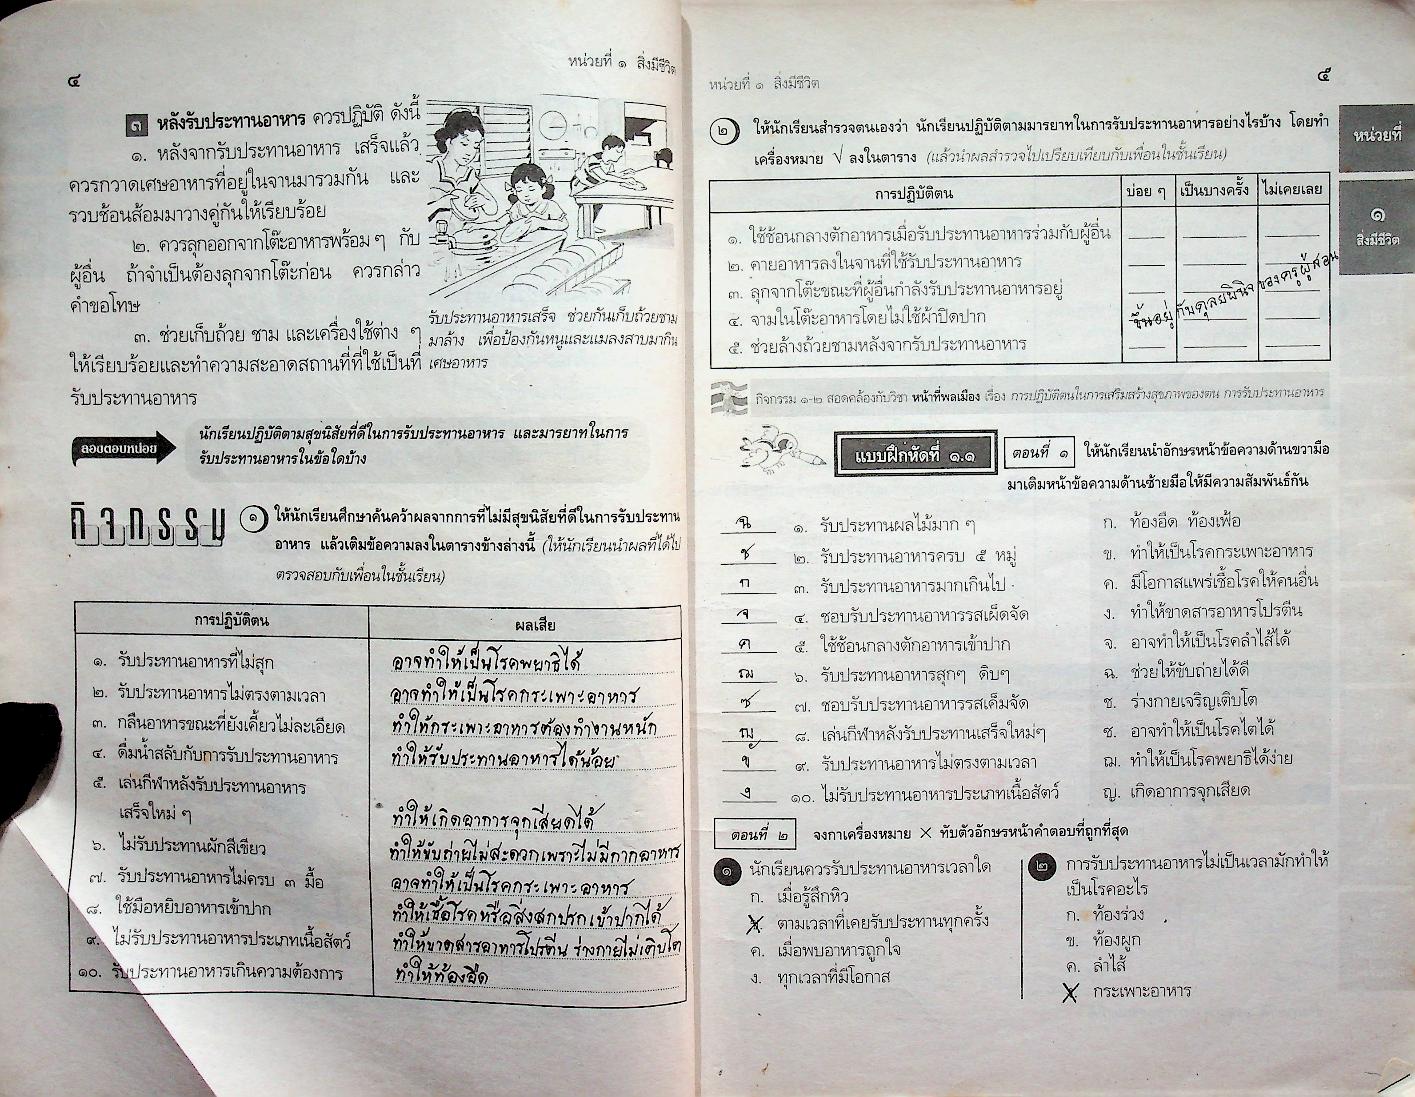 ๔
หน่วยที่ ๑ สิ่งมีชีวิต
๓ หลังรับประทานอาหาร ควรปฏิบัติ ดังนี้
๑. หลังจากรับประทานอาหาร เสร็จแล้ว
ควรกวาดเศษอาหารที่อยู่ในจานมารวมกัน และ
รวบช้อนส้อมมาวางคู่กันให้เรียบร้อย
๒. ควรลุกออกจากโต๊ะอาหารพร้อมๆ กับ
ผู้อื่น ถ้าจำเป็นต้องลุกจากโต๊ะก่อน ควรกล่าว
คำขอโทษ
๓. ช่วยเก็บถ้วย ชาม และเครื่องใช้ต่าง ๆ
ให้เรียบร้อยและทำความสะอาดสถานที่ที่ใช้เป็นที่
รับประทานอาหาร
รับประทานอาหารเสร็จ ช่วยกันเก็บถ้วยชาม
มาล้าง เพื่อป้องกันหนูและแมลงสาบมากิน
เศษอาหาร
ลองตอบหน่อย
นักเรียนปฏิบัติตามสุขนิสัยที่ดีในการรับประทานอาหาร และมารยาทในการ
รับประทานอาหารในข้อใดบ้าง
กิจกรรม
๑ ให้นักเรียนศึกษาค้นคว้าผลจากการที่ไม่มีสุขนิสัยที่ดีในการรับประทาน
อาหาร แล้วเติมข้อความลงในตารางข้างล่างนี้ (ให้นักเรียนนำผลที่ได้ไป
ตรวจสอบกับเพื่อนในชั้นเรียน)
การปฏิบัติตน ผลเสีย
๑. รับประทานอาหารที่ไม่สุก อาจทำให้เป็นโรคพยาธิได้
๒. รับประทานอาหารไม่ตรงตามเวลา อาจทำให้เป็นโรคกระเพาะอาหาร
๓. กลืนอาหารขณะที่ยังเคี้ยวไม่ละเอียด ทำให้กระเพาะอาหารต้องทำงานหนัก
๔. ดื่มน้ำสลับกับการรับประทานอาหาร ทำให้รับประทานอาหารได้น้อย
๕. เล่นกีฬาหลังรับประทานอาหาร
เสร็จใหม่ ๆ ทำให้เกิดอาการจุกเสียดได้
๖. ไม่รับประทานผักสีเขียว ทำให้ขับถ่ายไม่สะดวกเพราะไม่มีกากอาหาร
๗. รับประทานอาหารไม่ครบ ๓ มื้อ อาจทำให้เป็นโรคกระเพาะอาหาร
๘. ใช้มือหยิบอาหารเข้าปาก ทำให้เชื้อโรคหรือสิ่งสกปรกเข้าปากได้
๙. ไม่รับประทานอาหารประเภทเนื้อสัตว์ ทำให้ขาดสารอาหารโปรตีน ร่างกายไม่เติบโต
๑๐. รับประทานอาหารเกินความต้องการ ทำให้ท้องอืด
หน่วยที่ ๑ สิ่งมีชีวิต
๕
หน่วยที่
๑
สิ่งมีชีวิต
๒ ให้นักเรียนสำรวจตนเองว่า นักเรียนปฏิบัติตามมารยาทในการรับประทานอาหารอย่างไรบ้าง โดยทำ
เครื่องหมาย √ ลงในตาราง (แล้วนำผลสำรวจไปเปรียบเทียบกับเพื่อนในชั้นเรียน)
การปฏิบัติตน บ่อย ๆ เป็นบางครั้ง ไม่เคยเลย
๑. ใช้ช้อนกลางตักอาหารเมื่อรับประทานอาหารร่วมกับผู้อื่น
๒. คายอาหารลงในจานที่ใช้รับประทานอาหาร
๓. ลุกจากโต๊ะขณะที่ผู้อื่นกำลังรับประทานอาหารอยู่
๔. จามในโต๊ะอาหารโดยไม่ใช้ผ้าปิดปาก
๕. ช่วยล้างถ้วยชามหลังจากรับประทานอาหาร
ขึ้นอยู่กับดุลยพินิจของครูผู้สอน
กิจกรรม ๑-๒ สอดคล้องกับวิชา หน้าที่พลเมือง เรื่อง การปฏิบัติตนในการเสริมสร้างสุขภาพของตน การรับประทานอาหาร
แบบฝึกหัดที่ ๑.๑ ตอนที่ ๑ ให้นักเรียนนำอักษรหน้าข้อความด้านขวามือ
มาเติมหน้าข้อความด้านซ้ายมือให้มีความสัมพันธ์กัน
ฉ ๑. รับประทานผลไม้มาก ๆ ก. ท้องอืด ท้องเฟ้อ
ช ๒. รับประทานอาหารครบ ๕ หมู่ ข. ทำให้เป็นโรคกระเพาะอาหาร
ก ๓. รับประทานอาหารมากเกินไป ค. มีโอกาสแพร่เชื้อโรคให้คนอื่น
จ ๔. ชอบรับประทานอาหารรสเผ็ดจัด ง. ทำให้ขาดสารอาหารโปรตีน
ค ๕. ใช้ช้อนกลางตักอาหารเข้าปาก จ. อาจทำให้เป็นโรคลำไส้ได้
ฌ ๖. รับประทานอาหารสุกๆ ดิบๆ ฉ. ช่วยให้ขับถ่ายได้ดี
ซ ๗. ชอบรับประทานอาหารรสเค็มจัด ช. ร่างกายเจริญเติบโต
ญ ๘. เล่นกีฬาหลังรับประทานเสร็จใหม่ๆ ซ. อาจทำให้เป็นโรคไตได้
ข ๙. รับประทานอาหารไม่ตรงตามเวลา ฌ. ทำให้เป็นโรคพยาธิได้ง่าย
ง ๑๐. ไม่รับประทานอาหารประเภทเนื้อสัตว์ ญ. เกิดอาการจุกเสียด
ตอนที่ ๒ จงกาเครื่องหมาย × ทับตัวอักษรหน้าคำตอบที่ถูกที่สุด
๑ นักเรียนควรรับประทานอาหารเวลาใด
ก. เมื่อรู้สึกหิว
ตามเวลาที่เคยรับประทานทุกครั้ง
ค. เมื่อพบอาหารถูกใจ
ง. ทุกเวลาที่มีโอกาส
๒ การรับประทานอาหารไม่เป็นเวลามักทำให้
เป็นโรคอะไร
ก. ท้องร่วง
ข. ท้องผูก
ค. ลำไส้
กระเพาะอาหาร